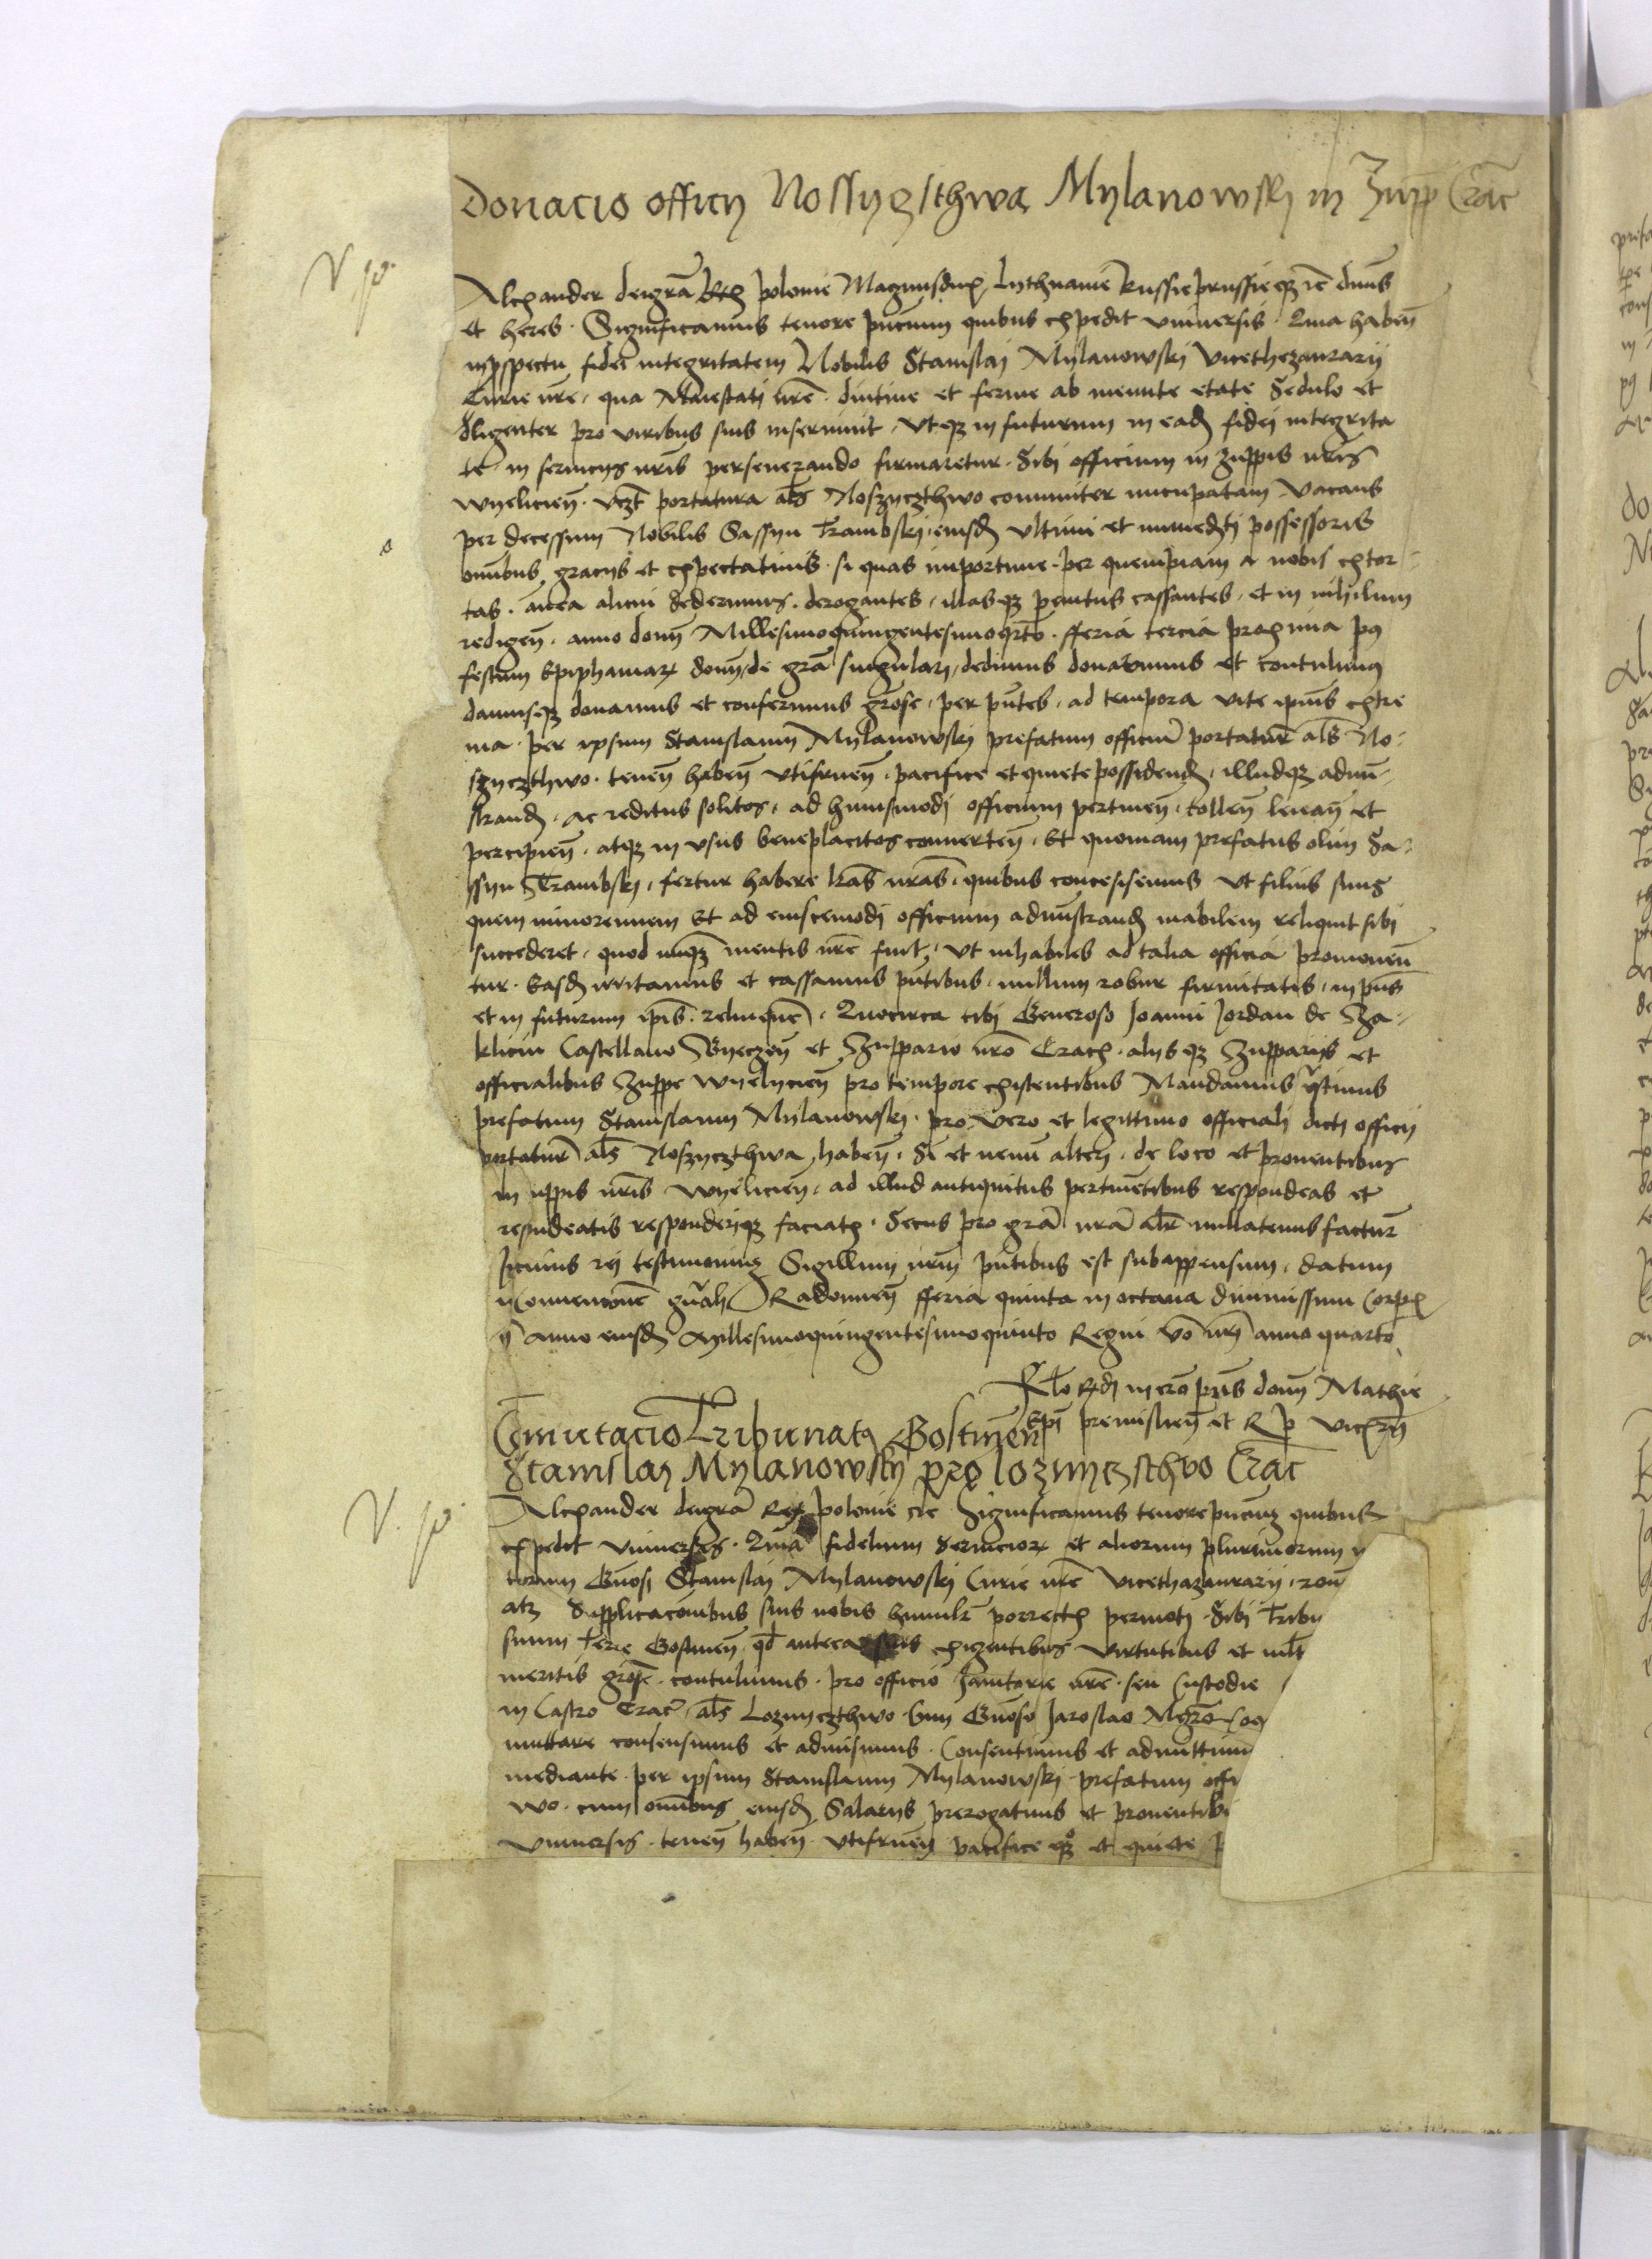 Donacio officij Nossyczsthwa Mylanowskj in Zupp Crac
Alexander dei gra Rex polonie Magnusdux Lythuanie Russie prussieqz ic dnus
et heres. Significamus tenore pncium quibus expedit vniuersis. Quia haben
inspectu fidei integritatem Nobilis Stanislaj Mylanowskj Vicethezaurarij
Curie nre, qua Maiestati nre diutine et ferme ab ineunte etate sedulo et
diligenter pro viribus suis inseruiuit, vtqz in futurum in eadz fidei integrita
te in seruicijs nris perseuerando firmaretur. Sibj officium in zuppis nris
wyeliciens. vczt portatura als Noszyczthwo comuniter nucupatam vacans
per decessum Nobilis Sassyn Trambskj eiusdz vltimi et immedti possessoris
omibus gracijs et expectatiuis si quas importune per quempiam a nobis extor
tas antea alicui dederimus. derogantes, illasqz penitus cassantes, et in nihilum
redigen. anno domi Millesimoquingentesimoqrto. fferia tercia proxima pq
festum Epiphaniarz domi, de gra singulari dedimus donauimus et contulimus
damusqz donamus et conferimus grose, per pntes, ad tempora vite ipius extre
ma per ipsum Stanislaum Mylanowskj prefatum officiu portatur als No
szyczthwo. tenen haben vtifruen pacifice et quiete possidendz, illudqz admi
strandz. ac reditus solitos, ad huiusmodj officium pertinen, tollen leuan et
percipien, atqz in vsus beneplacitos conuerten. Et quoniam prefatus olim Sa
ssyn Trambskj, fertur habere lras nras, quibus concesisemus vt filius suus
quem minorennem et ad eiuscemodj officium admistrandz inabilem reliquit sibi
succederet, quod nuqz mentis nre fuit, vt inhabiles ad talia officia promoueren
tur. Easdz irritamus et cassamus pntibus. nullum robur firmitatis, in pns
et in futurum ipis relinquen. Quocirca tibj Generoso Joanni Jordan de Za
kliczin Castellano Byeczen et Zuppario nro Crac. alijsqz Zupparijs et
officialibus Zuppe wyelycien pro tempore existentibus Mandamus qtinus
prefatum Stanislaum Mylanowskj pro vero et legittimo officiali dicti officij
portatur als Noszyczthwa haben. Sibi et nemi alteri. de loco et prouentibus
in uppis nris wyelicien, ad illud antiquitus pertinetibus respondeas et
respndeatis responderiqz faciatis. Secus pro gra nra alr nullatenus factur
Jn cuius rej testimonium Sigillum nrm pntibus est subappensum. Datum
in Conuencione gnali Radomien fferia quinta in octaua diuinissimi Corpis
anno eiusdz Millesimoquingentesimoquinto Regni vo nrj anno quarto
Rlo Rdi in cro pris domi Mathie
Epi premislien et R p vicecan
Comutacio Tribunatq Gostinen
Stanislaj Mylanowsky pro lozniczsthwo Crac
Alexander dei gra Rex polonie etc Significamus tenore pncium quibus
expedit vniuersis. Quia fidelium seruiciorz et aliorum plurimorum
torum Gnosi Stanislaj Mylanowskj Curie nre Vicethazaurarij, ron
atqz Supplicacoibus suis nobis humilr porrectis permoti. Sibi Tribu
suum terre Gostinen qd antea exigentibus virtutibus et mlt
meritis grose contulimus. pro officio Janitorie nre seu Custodie
in Castro Crac als Loznyczthwo cum Gnoso Jaroslao
muttare consensimus et admisimus. Consentimus et admittim
mediante per ipsum Stanislaum Mylanowskj prefatum offi
wo. cum omibus eiusdz Salarijs prerogatiuis et prouentib
vniuersis. tenen haben vtifruen pacificeqz et quiete p